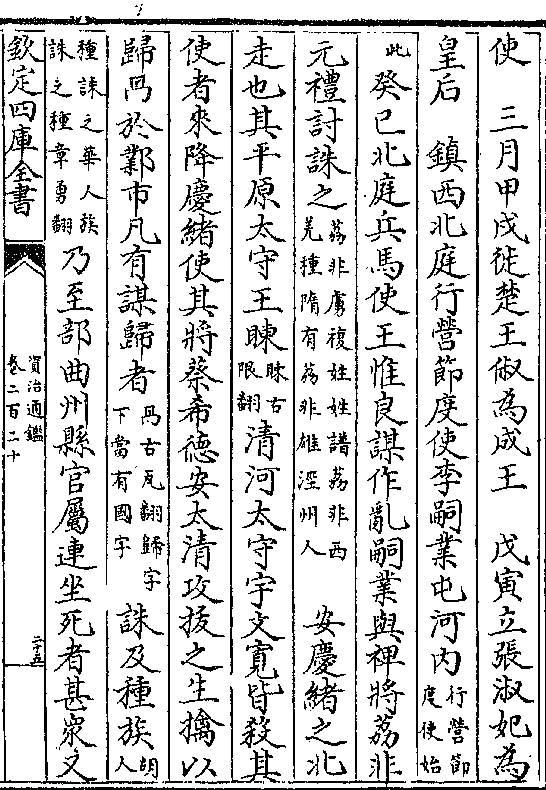 使　三月甲戌徙楚王俶為成王　戊寅立張淑妃為
皇后　鎮西北庭行營節度使李嗣業屯河内行營節度使始
此癸巳北庭兵馬使王惟良謀作亂嗣業與禆將荔非
元禮討誅之荔非虜複姓姓譜荔非西羌種隋有荔非雄涇州人　安慶緒之北
走也其平原太守王暕暕古限翻清河太守宇文寛皆殺其
使者來降慶緒使其將蔡希德安太清攻拔之生擒以
歸冎於鄴市凡有謀歸者冎古瓦翻歸字下當有國字　誅及種族胡人
種誅之華人族誅之種章勇翻乃至部曲州縣官屬連坐死者甚衆又
欽定四庫全書
資治通鑑
卷二百二十
二十五